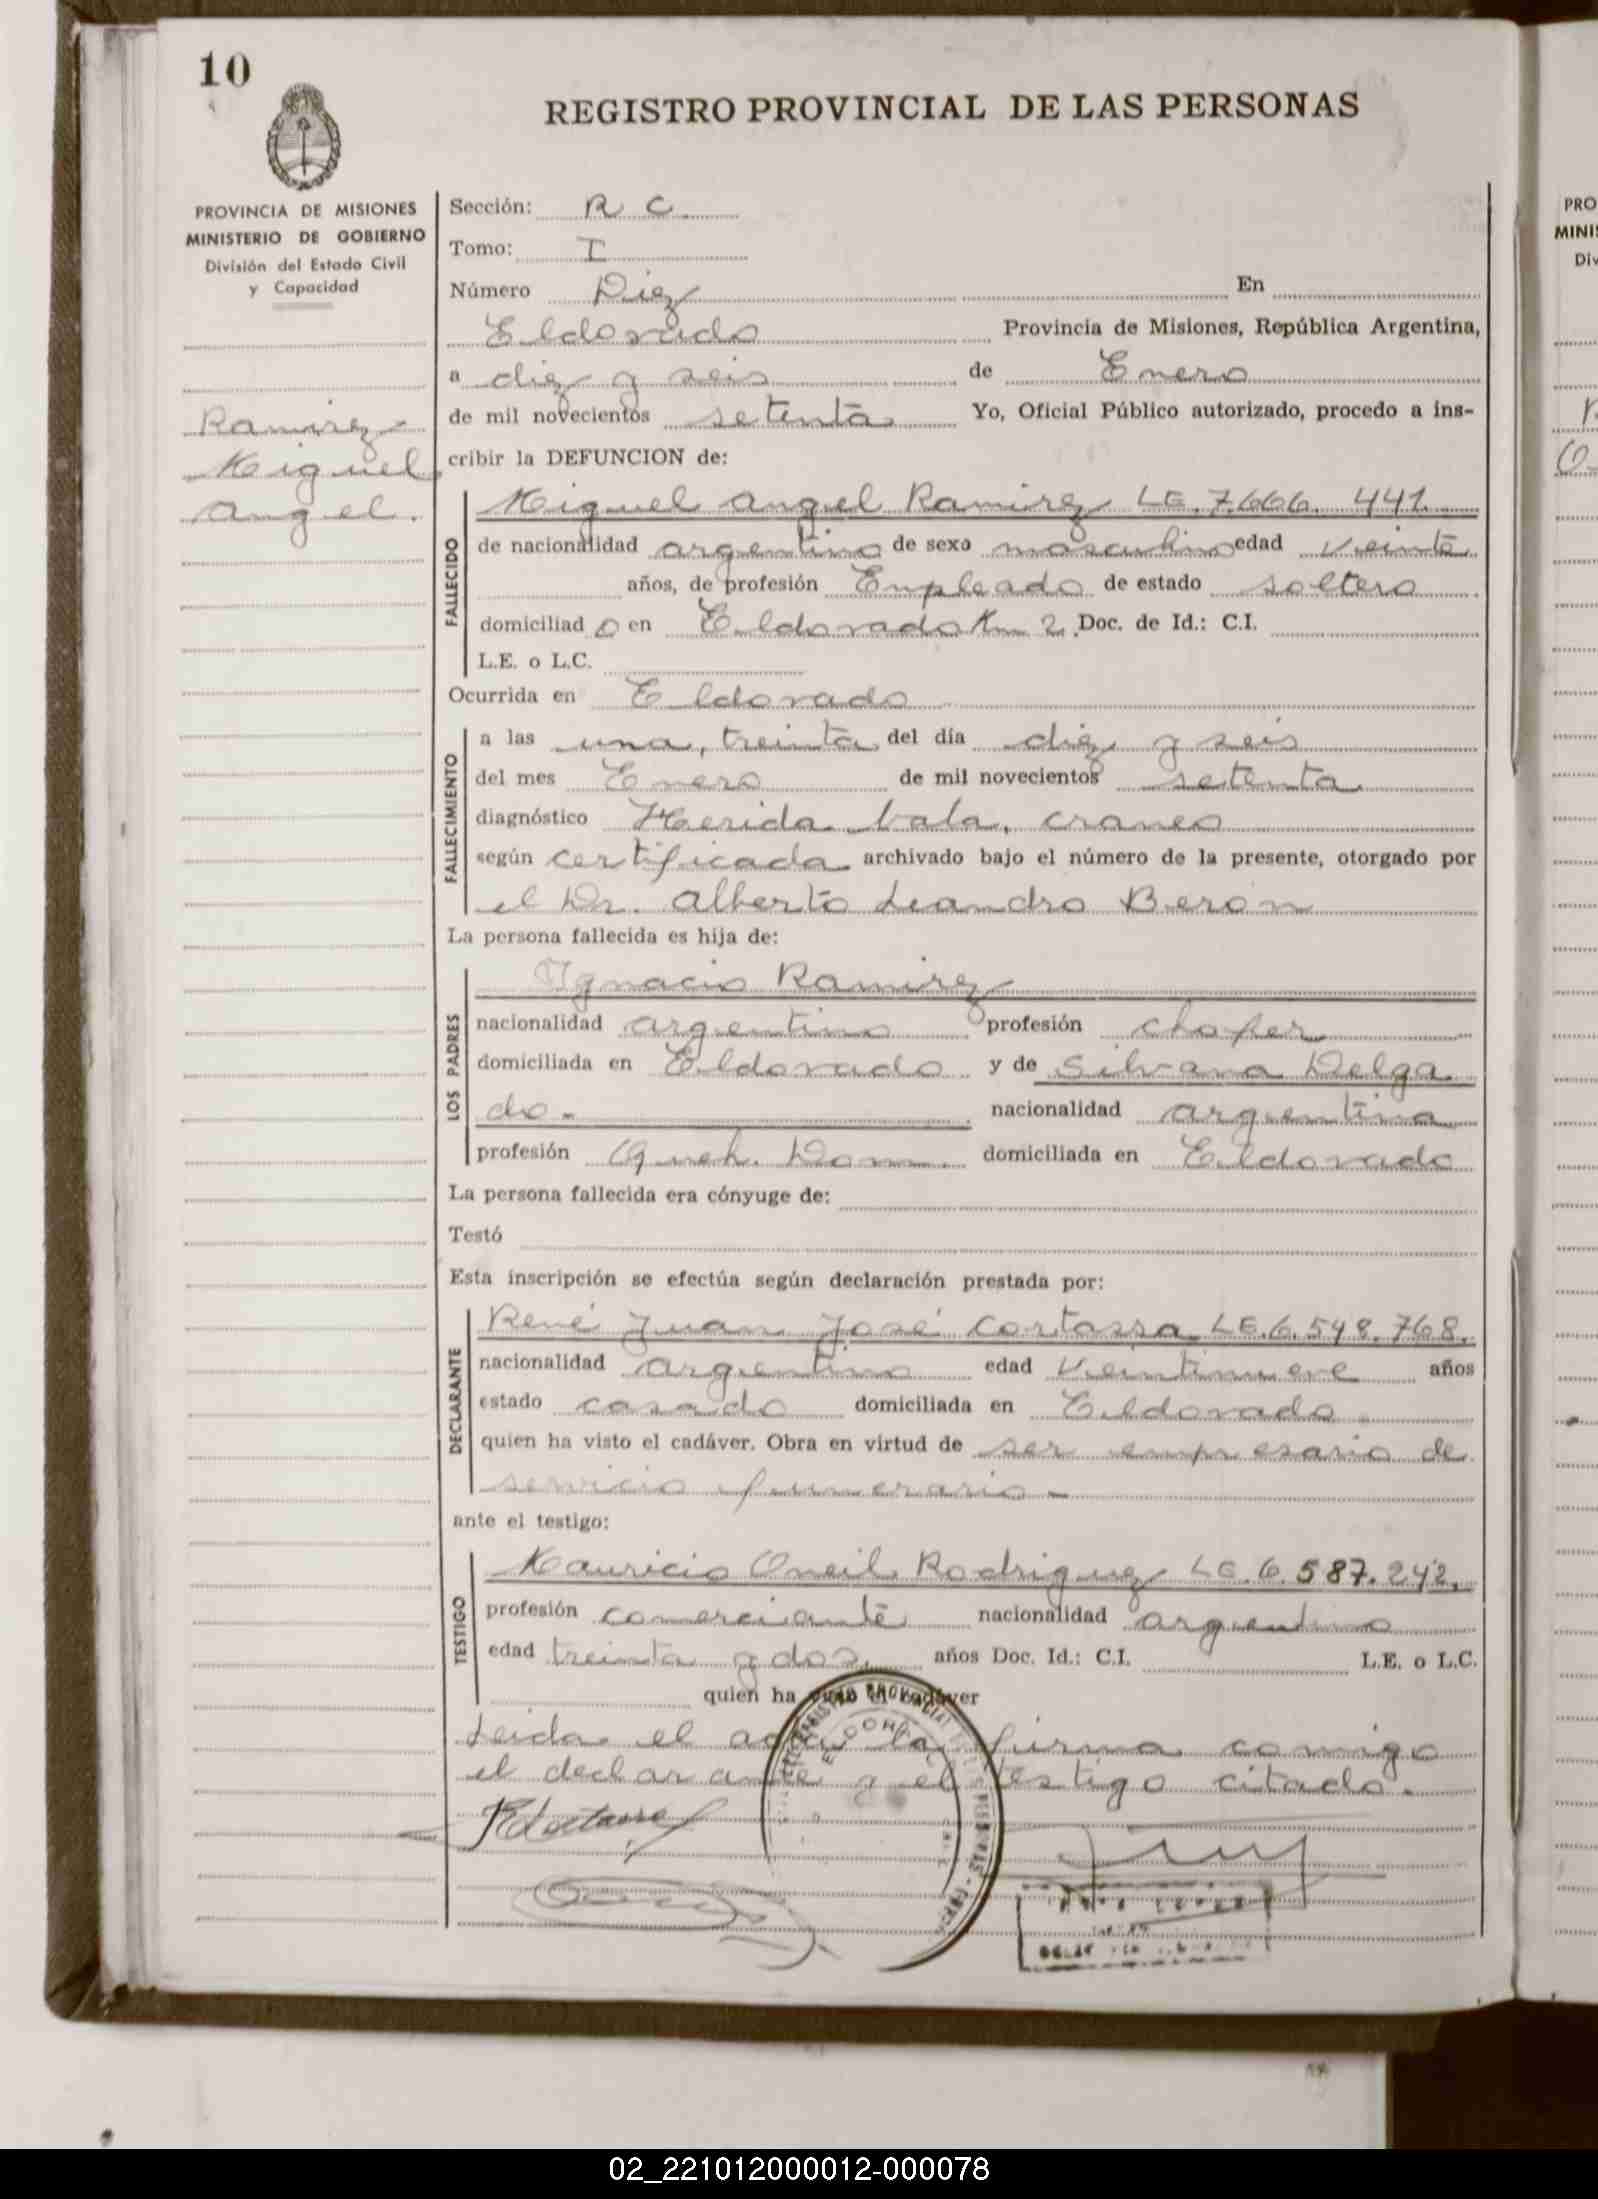 10
REGISTRO PROVINCIAL DE LAS PERSONAS
PROVINCIA DE MISIONES
MINISTERIO DE GOBIERNO
División del Estado Civil
y Capacidad
Ramirez
Miguel
Angel.
Sección: R C
Tomo: I
Número Diez En
Eldorado Provincia de Misiones, República Argentina,
a diez y seis de Enero
de mil novecientos setenta Yo, Oficial Público autorizado, procedo a ins-
cribir la DEFUNCION de:
FALLECIDO
Miguel Angel Ramirez LE. 7.666.441
de nacionalidad argentino de sexo masculino edad veinte
años, de profesión Empleado de estado soltero
domiciliad o en Eldorado Km 2. Doc. de Id.: C.I.
L.E. o L.C.
Ocurrida en Eldorado
FALLECIMIENTO
a las una, treinta del día diez y seis
del mes Enero de mil novecientos setenta
diagnóstico Herida bala, craneo
según certificada archivado bajo el número de la presente, otorgado por
el Dr. Alberto Leandro Beron
La persona fallecida es hija de:
LOS PADRES
Ignacio Ramirez
nacionalidad argentino profesión chofer
domiciliada en Eldorado y de Silvana Delga
do.- nacionalidad argentina
profesión Queh. Dom. domiciliada en Eldorado
La persona fallecida era cónyuge de:
Testó
Esta inscripción se efectúa según declaración prestada por:
DECLARANTE
René Juan José Cortassa LE. 6.548.768.
nacionalidad argentino edad veintinueve años
estado casado domiciliada en Eldorado
quien ha visto el cadáver. Obra en virtud de ser empresario de
servicio funerario.-
ante el testigo:
TESTIGO
Mauricio Oneil Rodriguez LE. 6.587.242.
profesión comerciante nacionalidad argentino
edad treinta y dos. años Doc. Id.: C.I. L.E. o L.C.
quien ha visto el cadáver
Leida el acta la firma comigo
el declarante y el testigo citado.
PRO
MINIS
Div
02_221012000012-000078